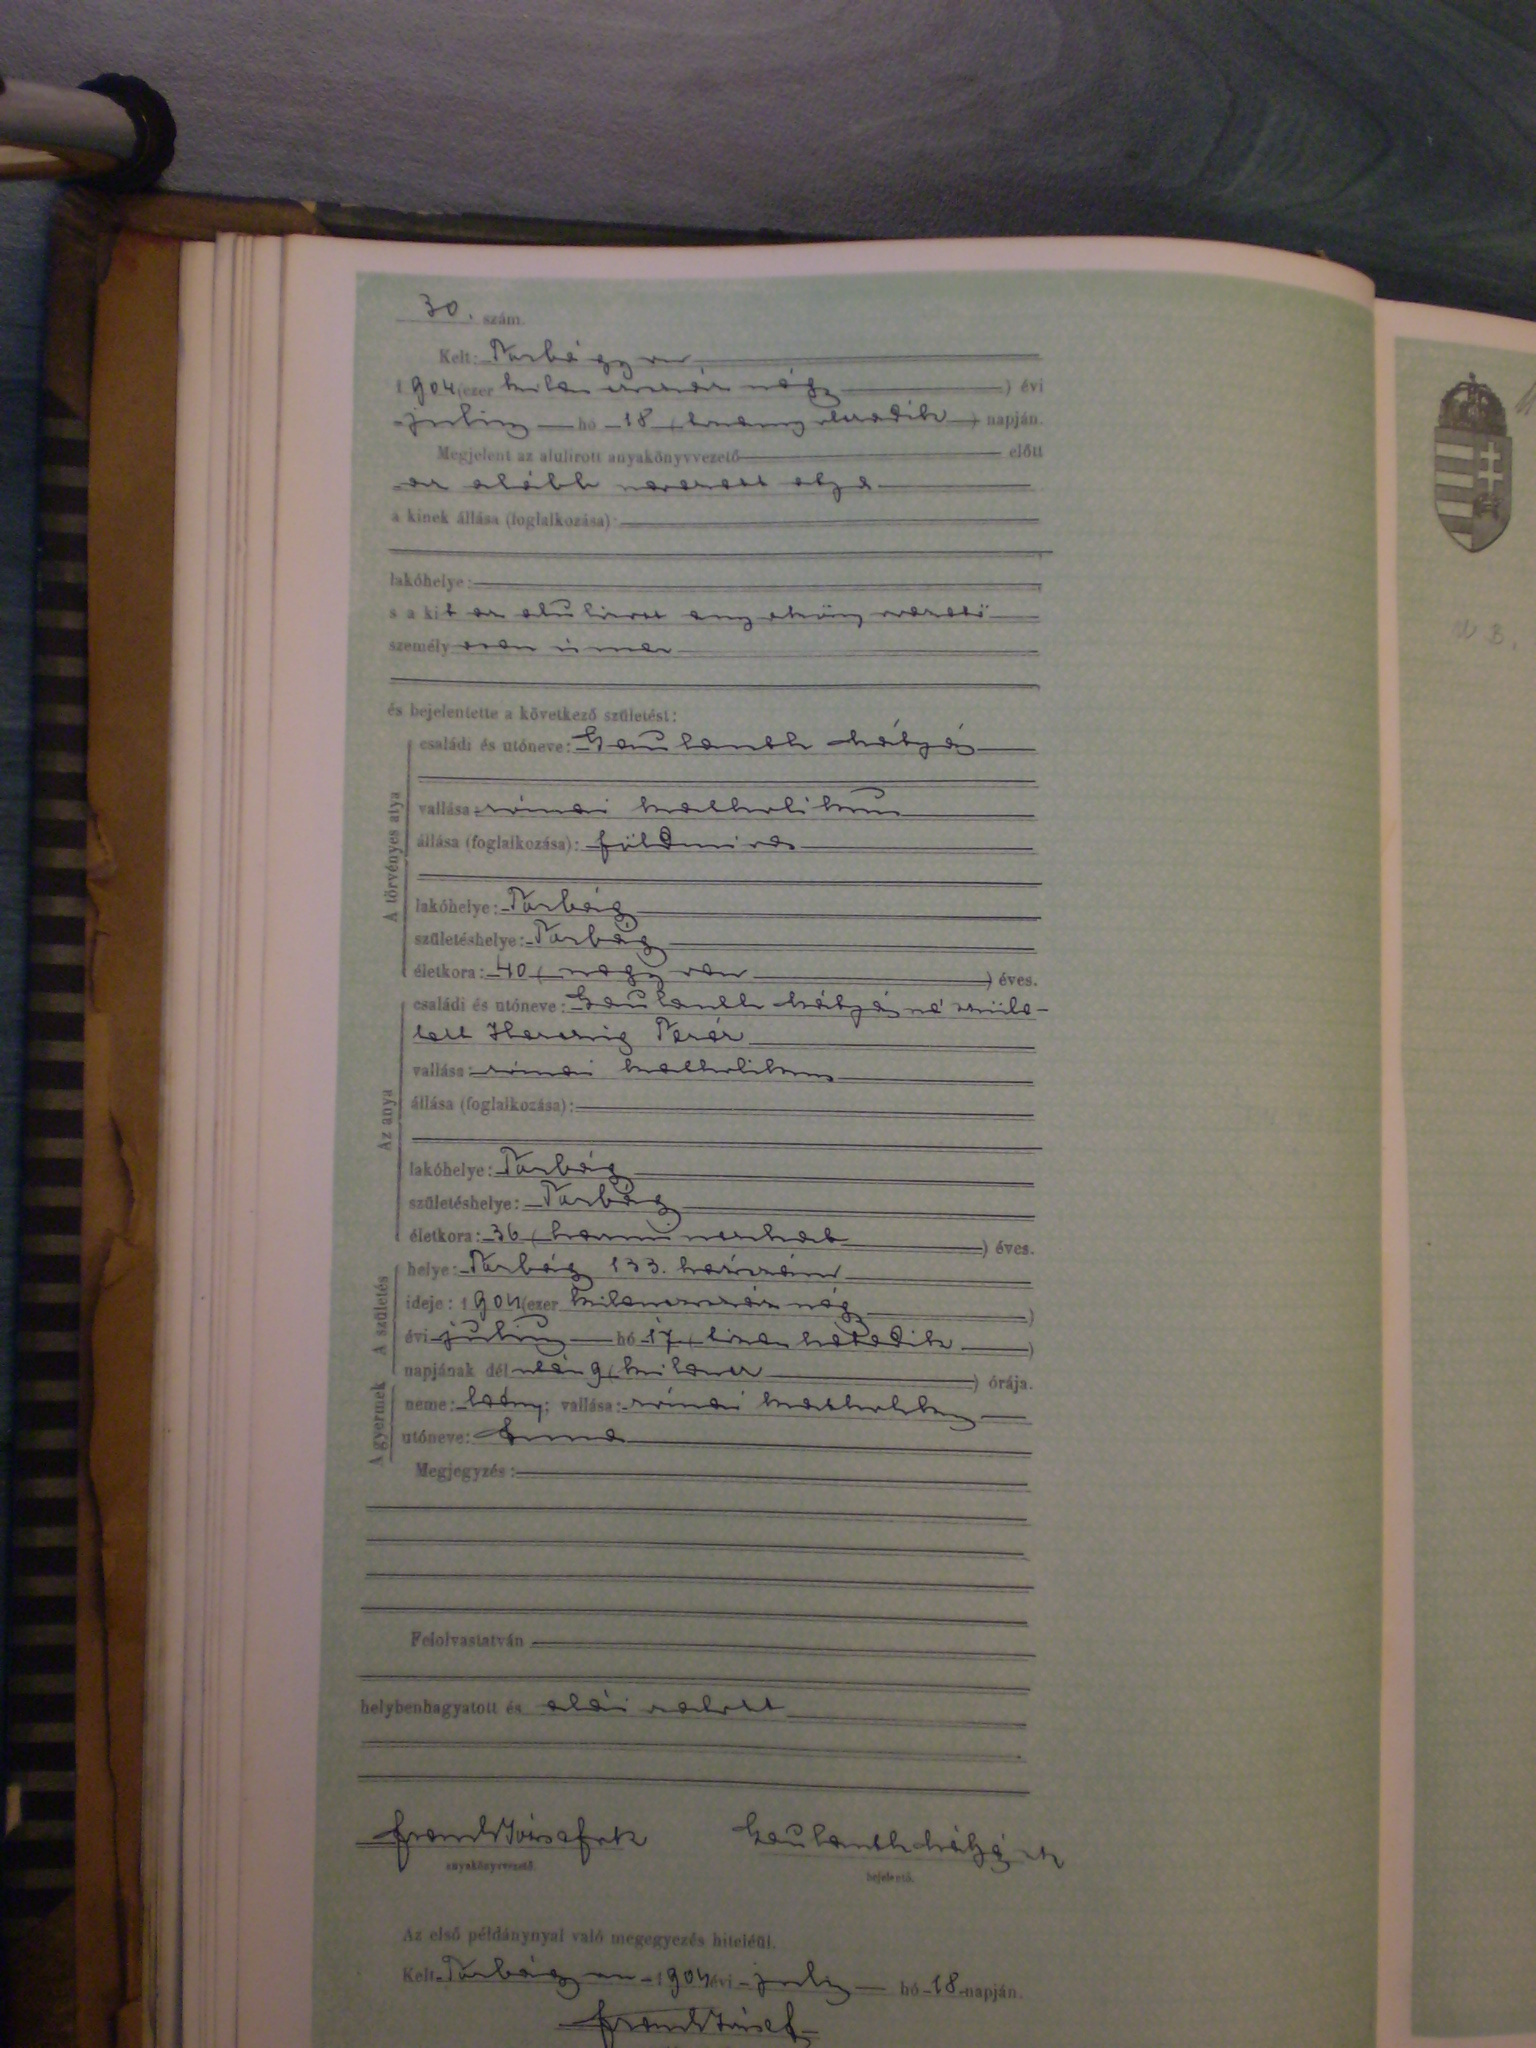 30. szám.
Kelt: Torbágyon,
1904 (ezer kilenczszáz négy) évi
julius hó 18 (tizennyolczadik) napján.
Megjelent az alulirott anyakönyvvezető előtt
az alább nevezett atya
a kinek állása (foglalkozása):
lakóhelye:
s a kit az alulirott anyakönyvvezető
személyesen ismer
és bejelentette a következő születést:
A törvényes atya
családi és utóneve: Gaulanth Mátyás
vallása: római katholikus
állása (foglalkozása): földmives
lakóhelye: Torbágy
születéshelye: Torbágy
életkora: 40 (negyven) éves.
Az anya
családi és utóneve: Gaulanth Mátyásné szüle-
tett Herczig Teréz
vallása: római katholikus
állása (foglalkozása):
lakóhelye: Torbágy
születéshelye: Torbágy
életkora: 36 (harminczhat) éves.
A születés
helye: Torbágy 133. házszám
ideje: 1904 (ezer kilenczszáz négy)
évi julius hó 17 (tizenhetedik)
napjának dél után 9 (kilencz) órája.
A gyermek
neme: leány; vallása: római katholikus
utóneve: Anna
Megjegyzés:
Felolvastatván
helybenhagyatott és aláiratott
József sk
anyakönyvvezető.
Gaulanth Mátyás sk
bejelentő.
Az első példánynyal való megegyezés hiteléül.
Kelt Torbágyon 1904 évi julius hó 18 napján.
József